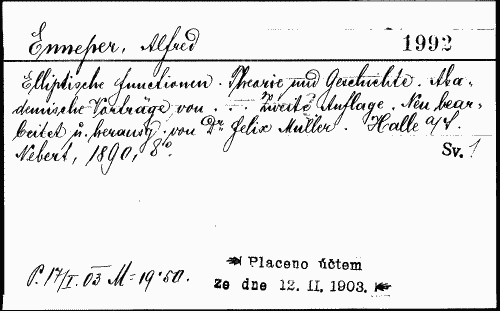 Enneper, Alfred
1992
Elliptische Functionen. Theorie und Geschichte. Aka-
demische Vorträge von . . . Zweite Auflage. Neu bear-
beitet u. herausg. von Dr. Felix Müller. Halle a/S.
Nebert, 1890, 8o.
Sv. 1
P. 17/I. 03 M = 19·50.
Placeno účtem
ze dne 12. II. 1903.